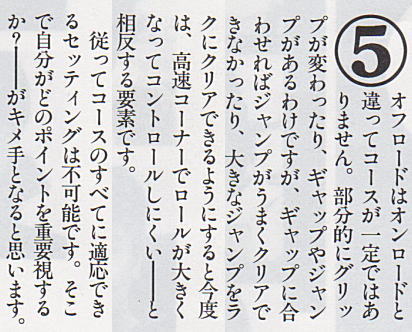 ⑤
オフロードはオンロードと
違ってコースが一定ではあ
りません。部分的にグリッ
プが変わったり、ギャップやジャン
プがあるわけですが、ギャップに合
わせればジャンプがうまくクリアで
きなかったり、大きなジャンプをラ
クにクリアできるようにすると今度
は、高速コーナーでロールが大きく
なってコントロールしにくい──と
相反する要素です。
従ってコースのすべてに適応でき
るセッティングは不可能です。そこ
で自分がどのポイントを重要視する
か？──がキメ手となると思います。